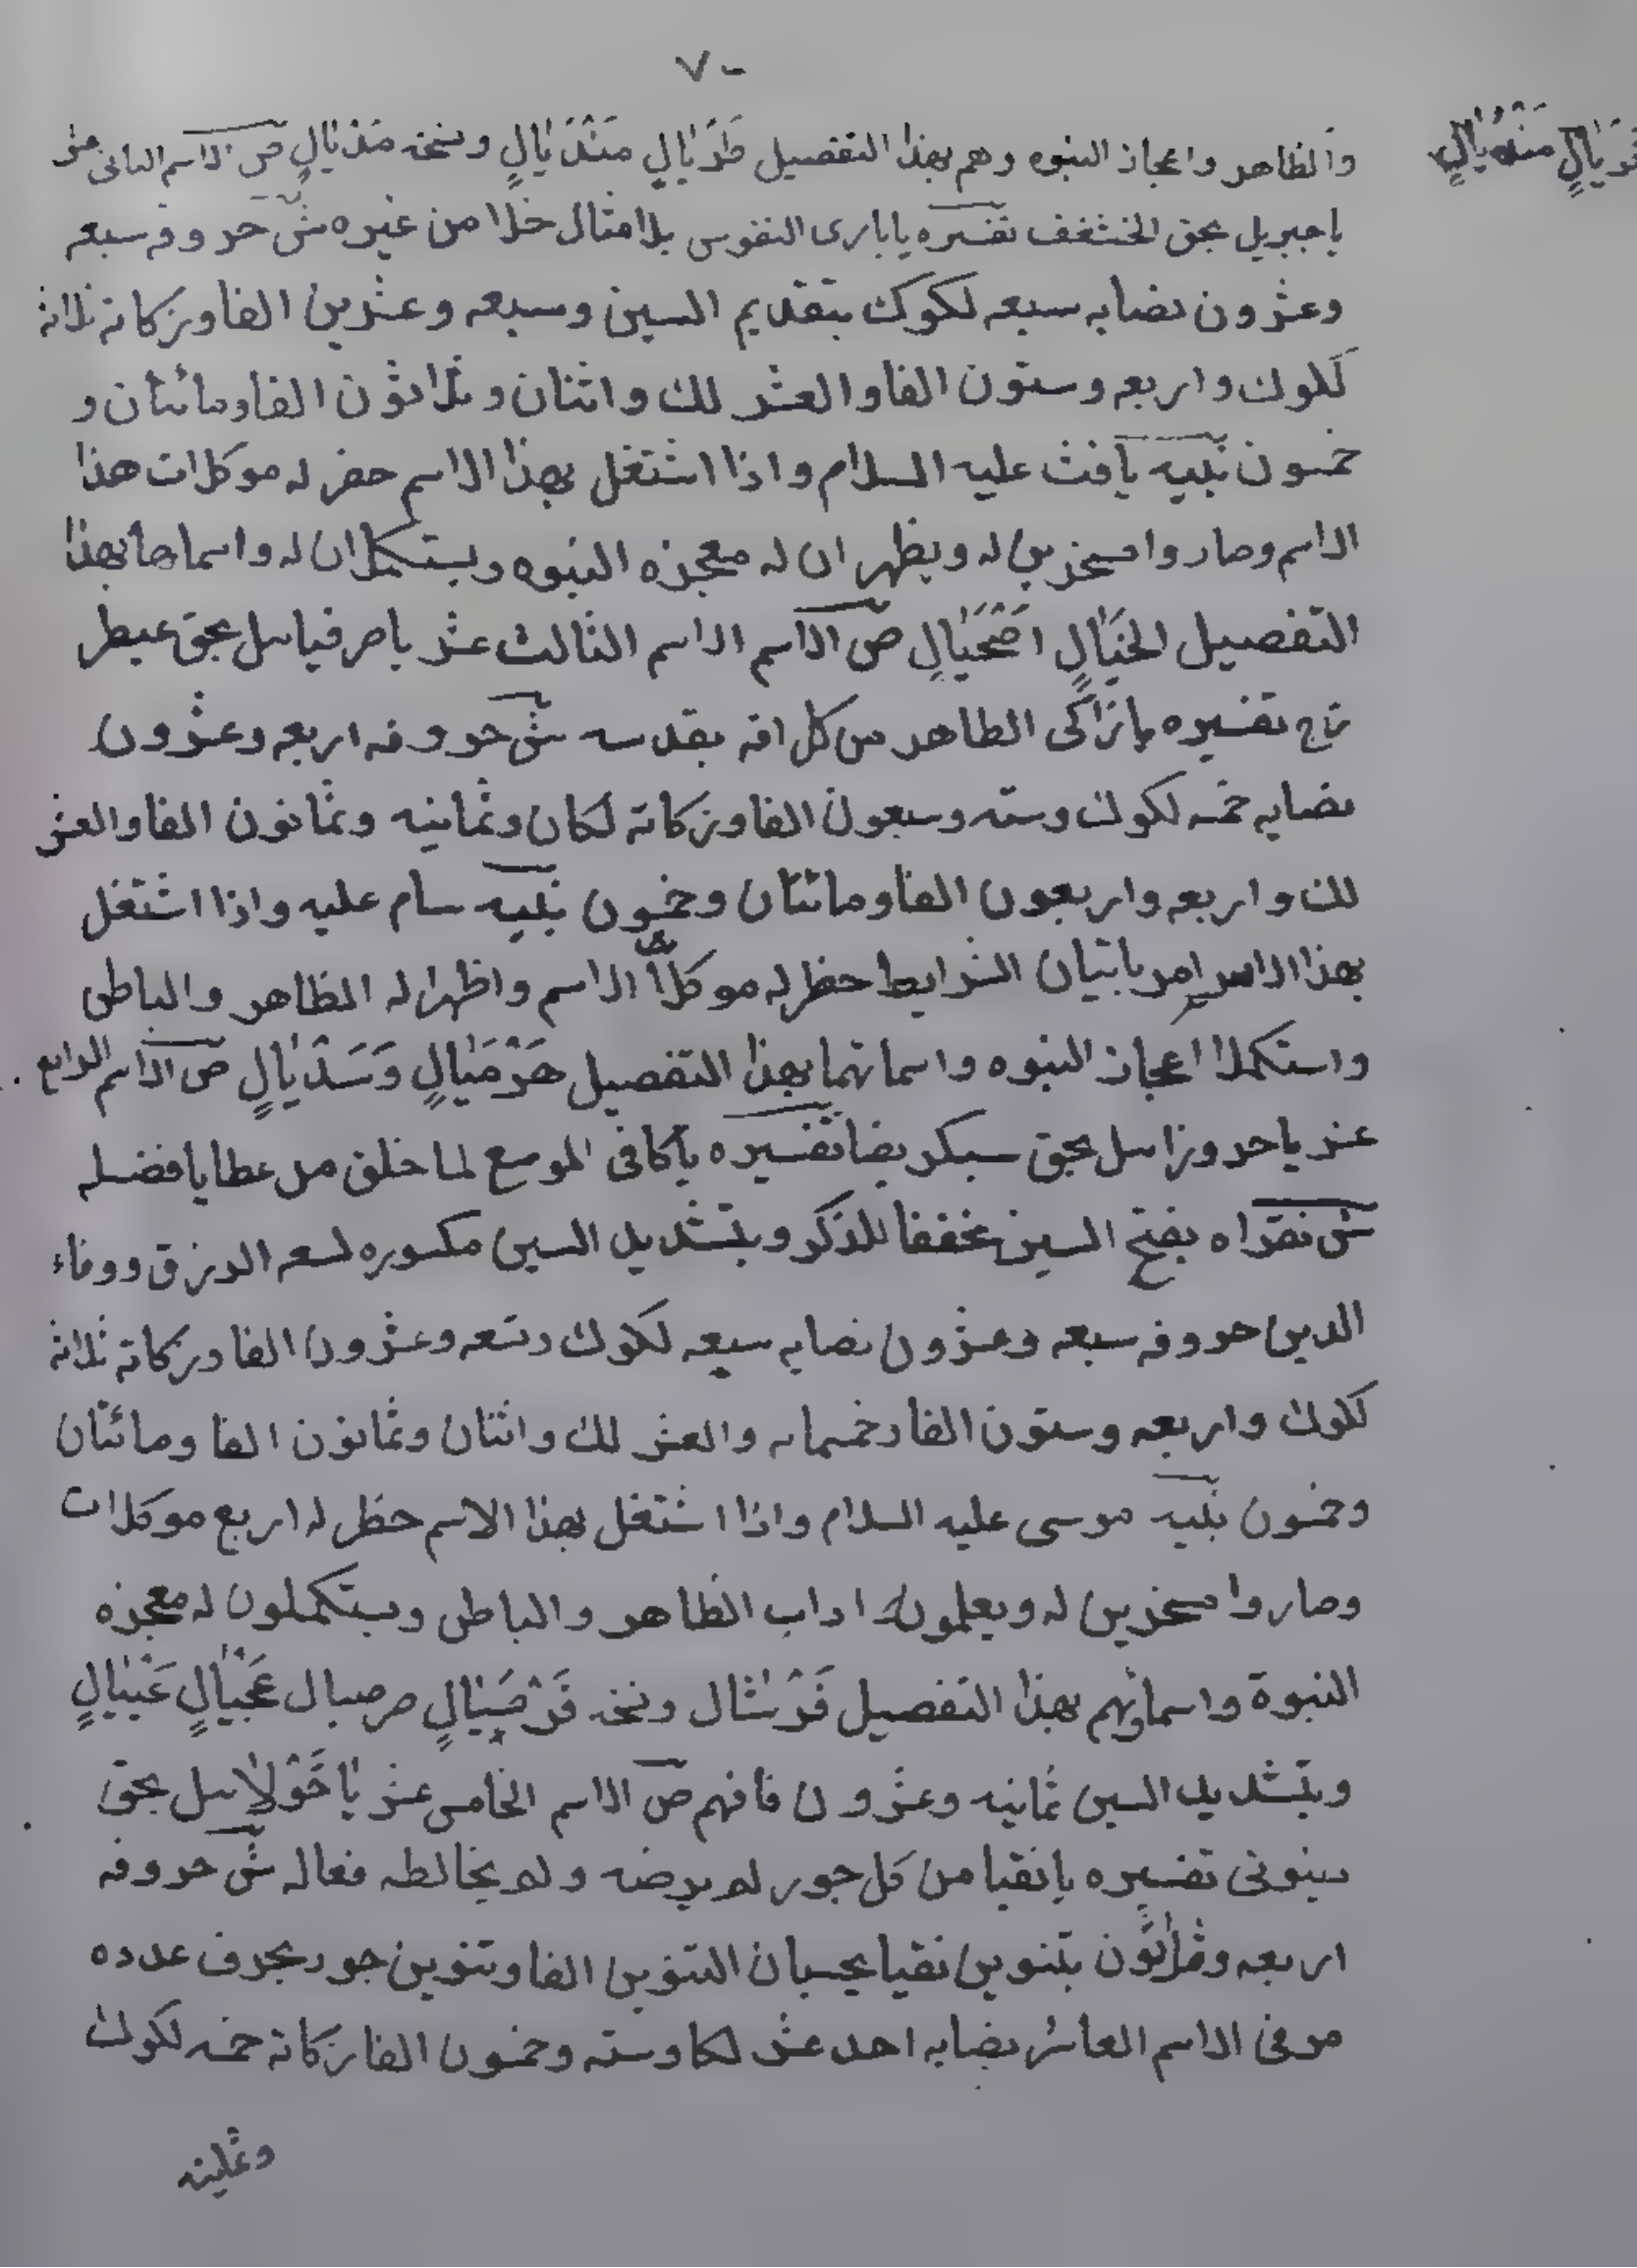 ٧٠
والظاهر واعجاز النبوه وهم بهذا التفصيل طَدَيَالٍ مَنْدَيَالٍ ونسخه مَدْيَالٍ ص الاسم الثانى عشر
يا جبريل بحق الخثغف تفسيره يا بارى النفوس بلا امثال خلا من غيره ش حروفه سبعه
وعشرون نصابه سبعه لكوك بتقديم السين وسبعه وعشرين الفا وزكاته ثلاثه
لكوك واربعه وستون الفا والعشر لك واثنان وثلاثون الفا ومائتان و
خمسون نبيه يافث عليه السلام واذا اشتغل بهذا الاسم حضر له موكلات هذا
الاسم وصاروا مسخرين له ويظهران له معجزه النبوه ويستكملان له واسماها بهذا
التفصيل الخَيَالٍ اصْحَيَالٍ ص الاسم الاسم الثالث عشر يا صرفيائيل بحق عيطر
تاج تفسيره يا زاكى الطاهر من كل افه بقدسه ش حروفه اربعه وعشرون
نصابه خمسه لكوك وسته وسبعون الفا وزكاته لكان وثمانيه وثمانون الفا والعشر
لك واربعه واربعون الفا ومائتان وخمسون نبيه سام عليه واذا اشتغل
بهذا الاسم امر باتيان الشرايط حظر له موكلا الاسم واظهرا له الظاهر والباطن
واستكملا اعجاز النبوه واسمائهما بهذا التفصيل هَرْمَيَالٍ وَسَدْيَالٍ ص الاسم الرابع
عشر يا حروزائيل بحق سبكر يضا تفسيره يا كافى الموسع لما خلق من عطايا فضله
ش نقراه بفتح السين مخففا للذكر وبتشديد السين مكسوره لسعه الرزق ووفاء
الدين حروفه سبعه وعشرون نصابه سبعه لكوك وتسعه وعشرون الفا وزكاته ثلاثه
لكوك واربعه وستون الفا وخمسمايه والعشر لك واثنان وثمانون الفا ومائتان
وخمسون نبيه موسى عليه السلام واذا اشتغل بهذا الاسم حظر له اربع موكلات
وصاروا مسخرين له ويعلمون له اداب الظاهر والباطن ويستكملون له معجزه
النبوة واسمائهم بهذا التفصيل فَرْشَال ونسخه فَرْصَيَالٍ صرصيال عَجْيَالٍ عَيْيَالٍ
وبتشديد السين ثمانيه وعشرون فافهم ص الاسم الخامس عشر يا حَوْلائيل بحق
بينونى تفسيره يا نقيا من كل جور لم يرضه ولم يخالطه فعاله ش حروفه
اربعه وثلاثون بتنوين نقيا بحسبان التنوين الفا وتنوين جور بحرف عدده
مر فى الاسم العاشر نصابه احد عشر لكا وسته وخمسون الفا زكاته خمسه لكوك